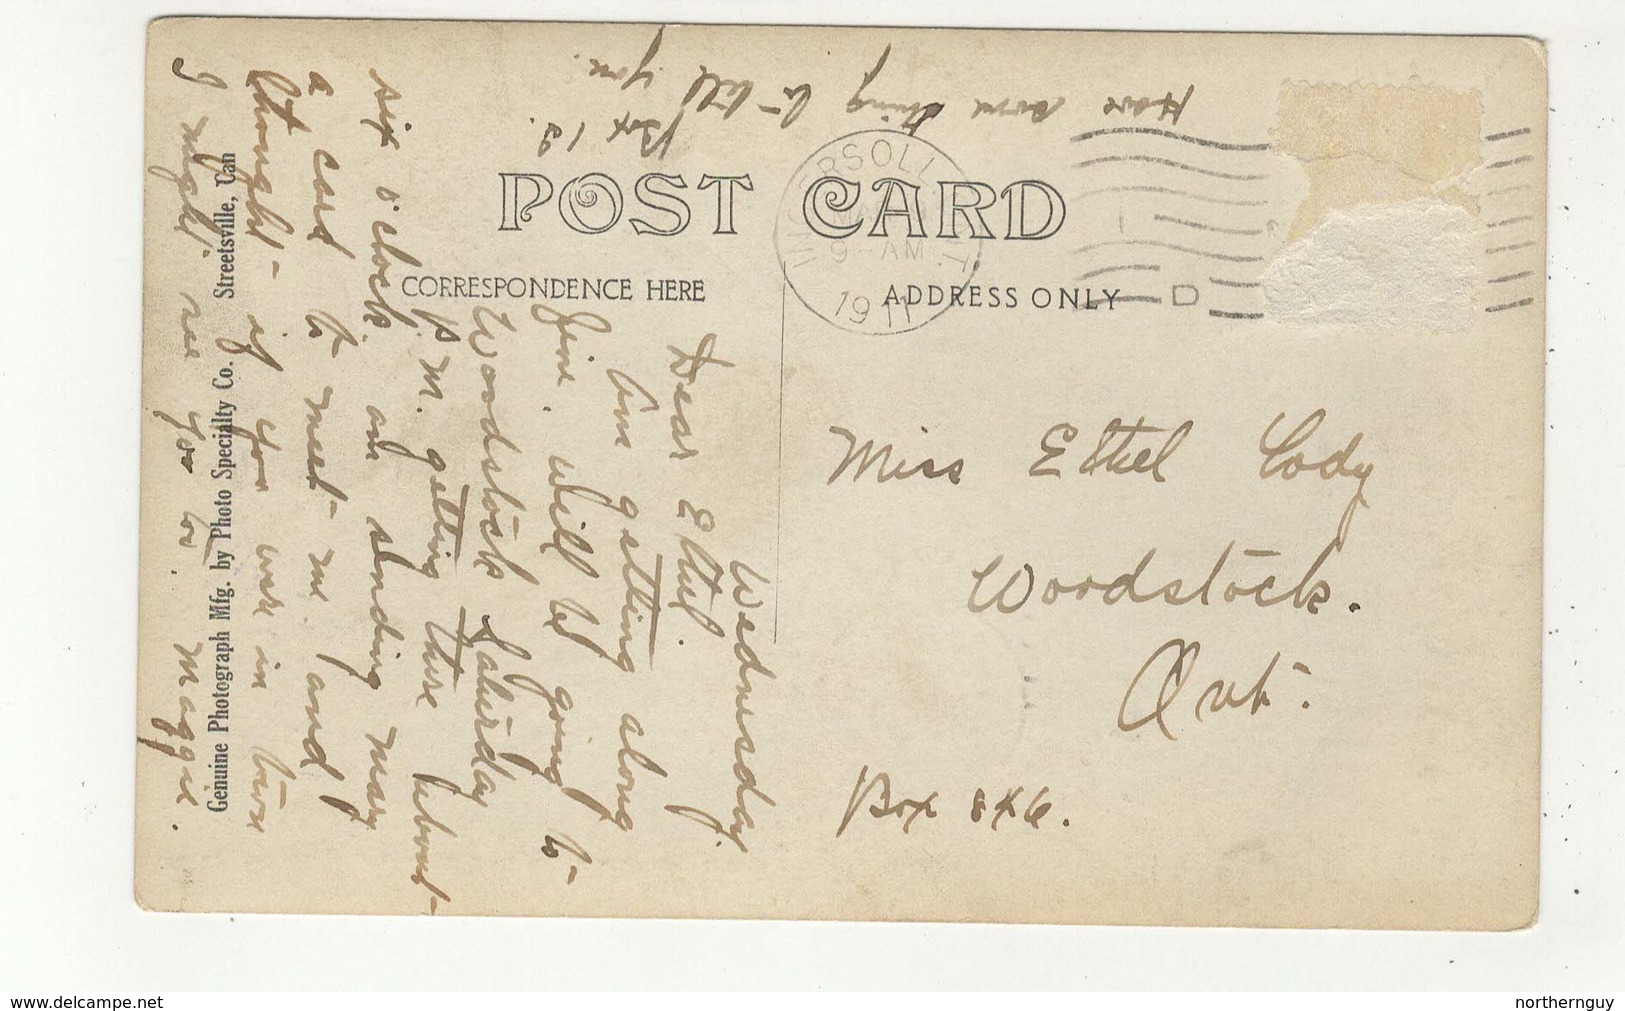 POST CARD
CORRESPONDENCE HERE
ADDRESS ONLY
INGERSOLL ONT
9 - AM
1911
D
Wednesday.
Dear Ethel.
Am getting along
fine. will be going to
Woodstock Saturday
P.M. getting there about
six o'clock. am sending Mary
a card to meet me and
thought if you were in town
I might see you too. Maggie.
Have some thing to tell you.
Box 12.
Miss Ethel Cody
Woodstock.
Ont.
Box 846.
Genuine Photograph Mfg. by Photo Specialty Co. Streetsville, Can
www.delcampe.net
northernguy